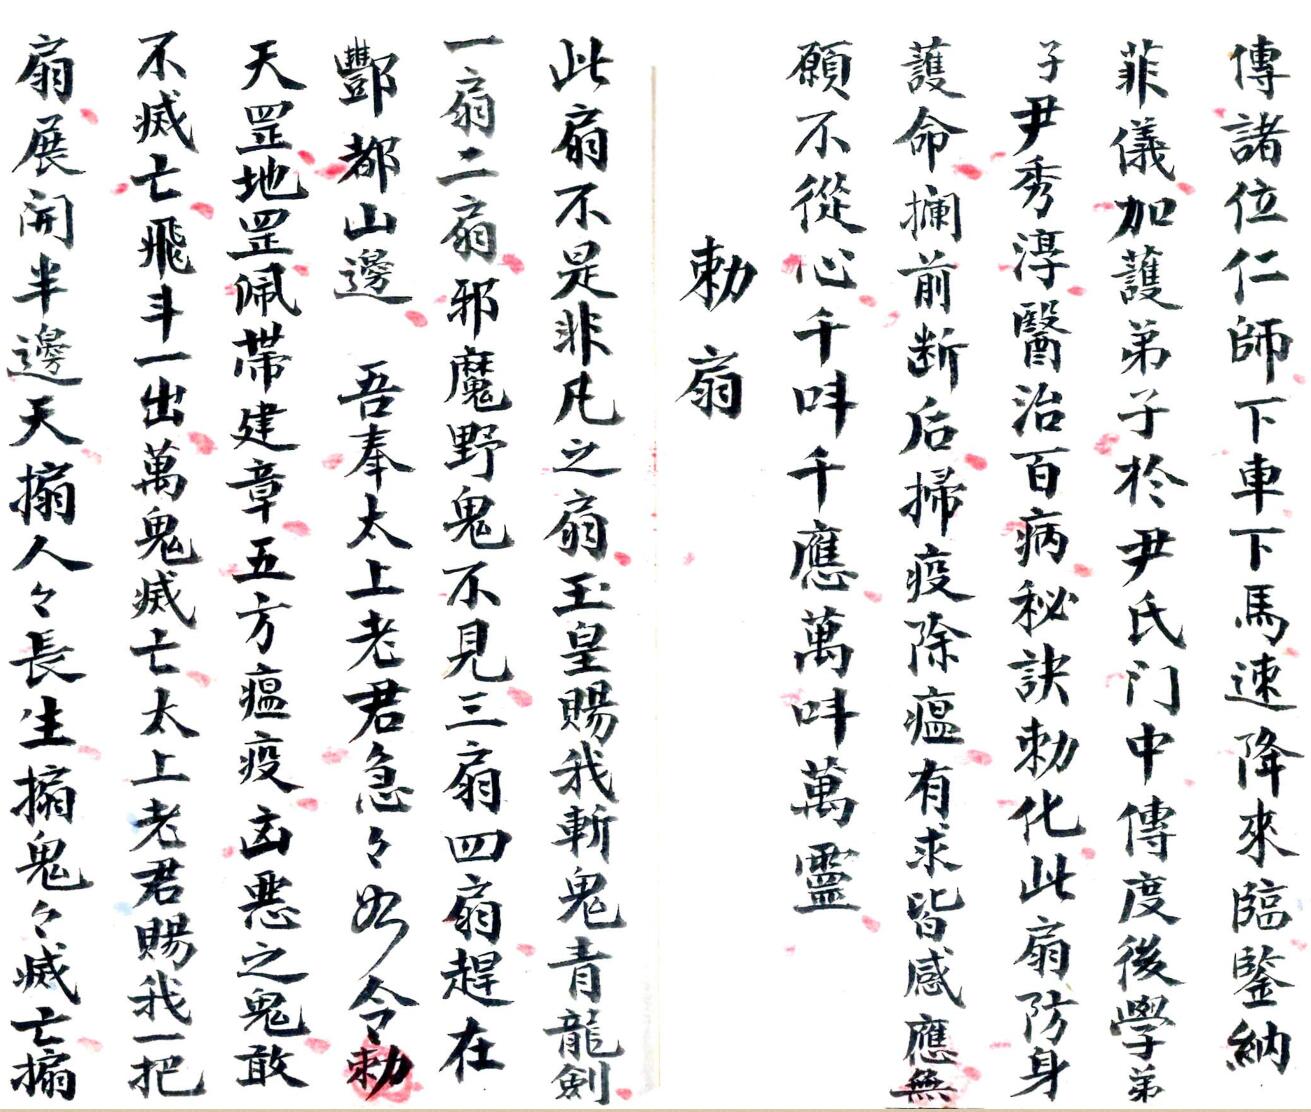 傳諸位仁師下車下馬速降來臨鑒納
菲儀加護弟子於尹氏门中傳度後學弟
子尹秀淳醫治百病秘訣勅化此扇防身
護命攔前断后掃疫除瘟有求皆感應無
願不從心千呌千應萬呌萬靈
勅扇
此扇不是非凡之扇玉皇賜我斬鬼青龍劍
一扇二扇邪魔野鬼不見三扇四扇趕在
酆都山邊 吾奉太上老君急々如令勅
天罡地罡佩帶建章五方瘟疫凶悪之鬼敢
不滅亡飛斗一出萬鬼滅亡太上老君賜我一把
扇展開半邊天搧人々長生搧鬼々滅亡搧